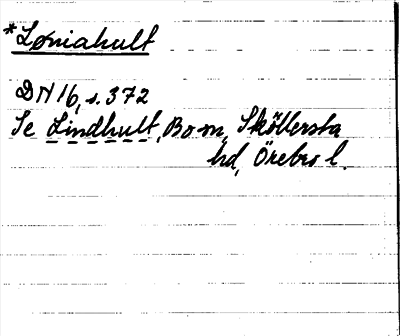 *Løniahult
DN 16, s. 372
Se Lindhult, Bo sn, Sköllersta
hd, Örebro l.